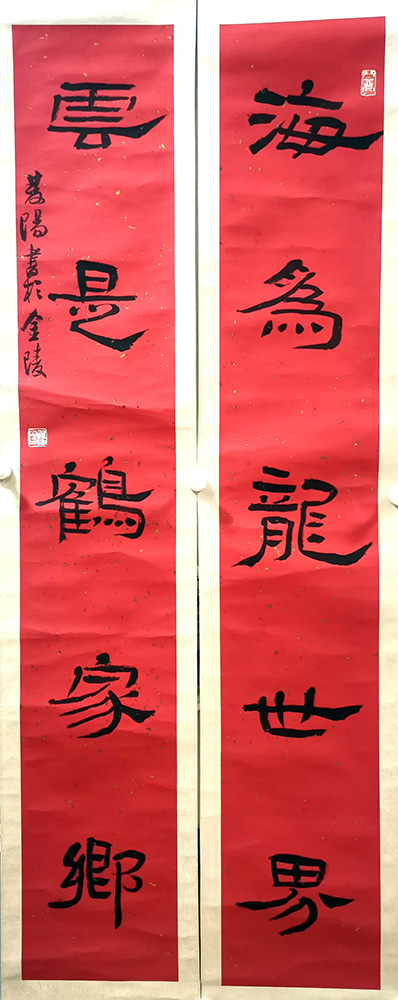 海為龍世界
雲是鶴家鄉
陽書於金陵